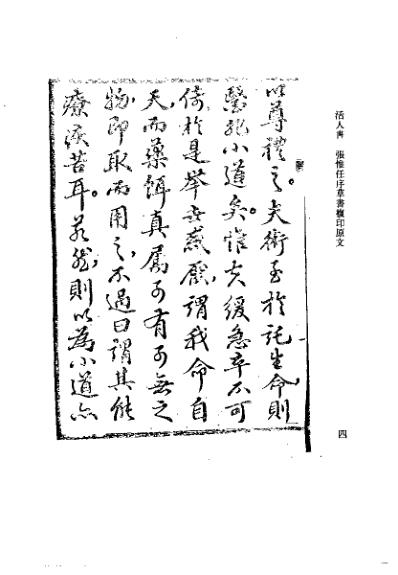 活人書　張惟任序草書複印原文
以尊禮之。夫術至於託生命則
醫非小道矣。惟夫緩急卒不可
倚於是舉世惑厭，謂我命自
天，而藥餌真屬可有可無之
物，即取而用之，不過曰謂其能
療疾苦耳。若然，則以為小道亦
四